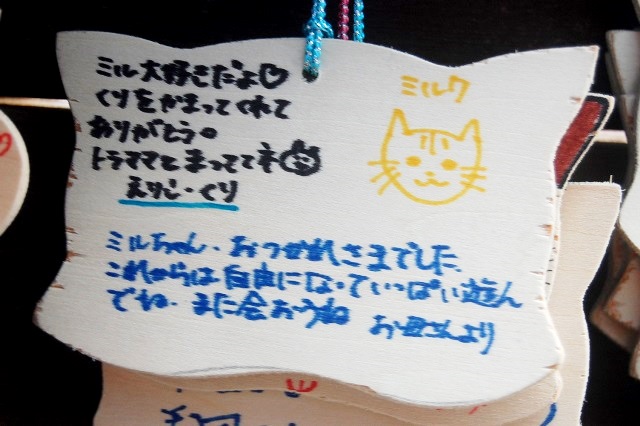 ミル大好きだよ♡
くりをかまってくれて
ありがとう。
トラママとまっててネ
えりこ・くり
ミルク
ミルちゃん、おつかれさまでした。
これからは自由になっていっぱい遊ん
でね。また会おうね お母さんより